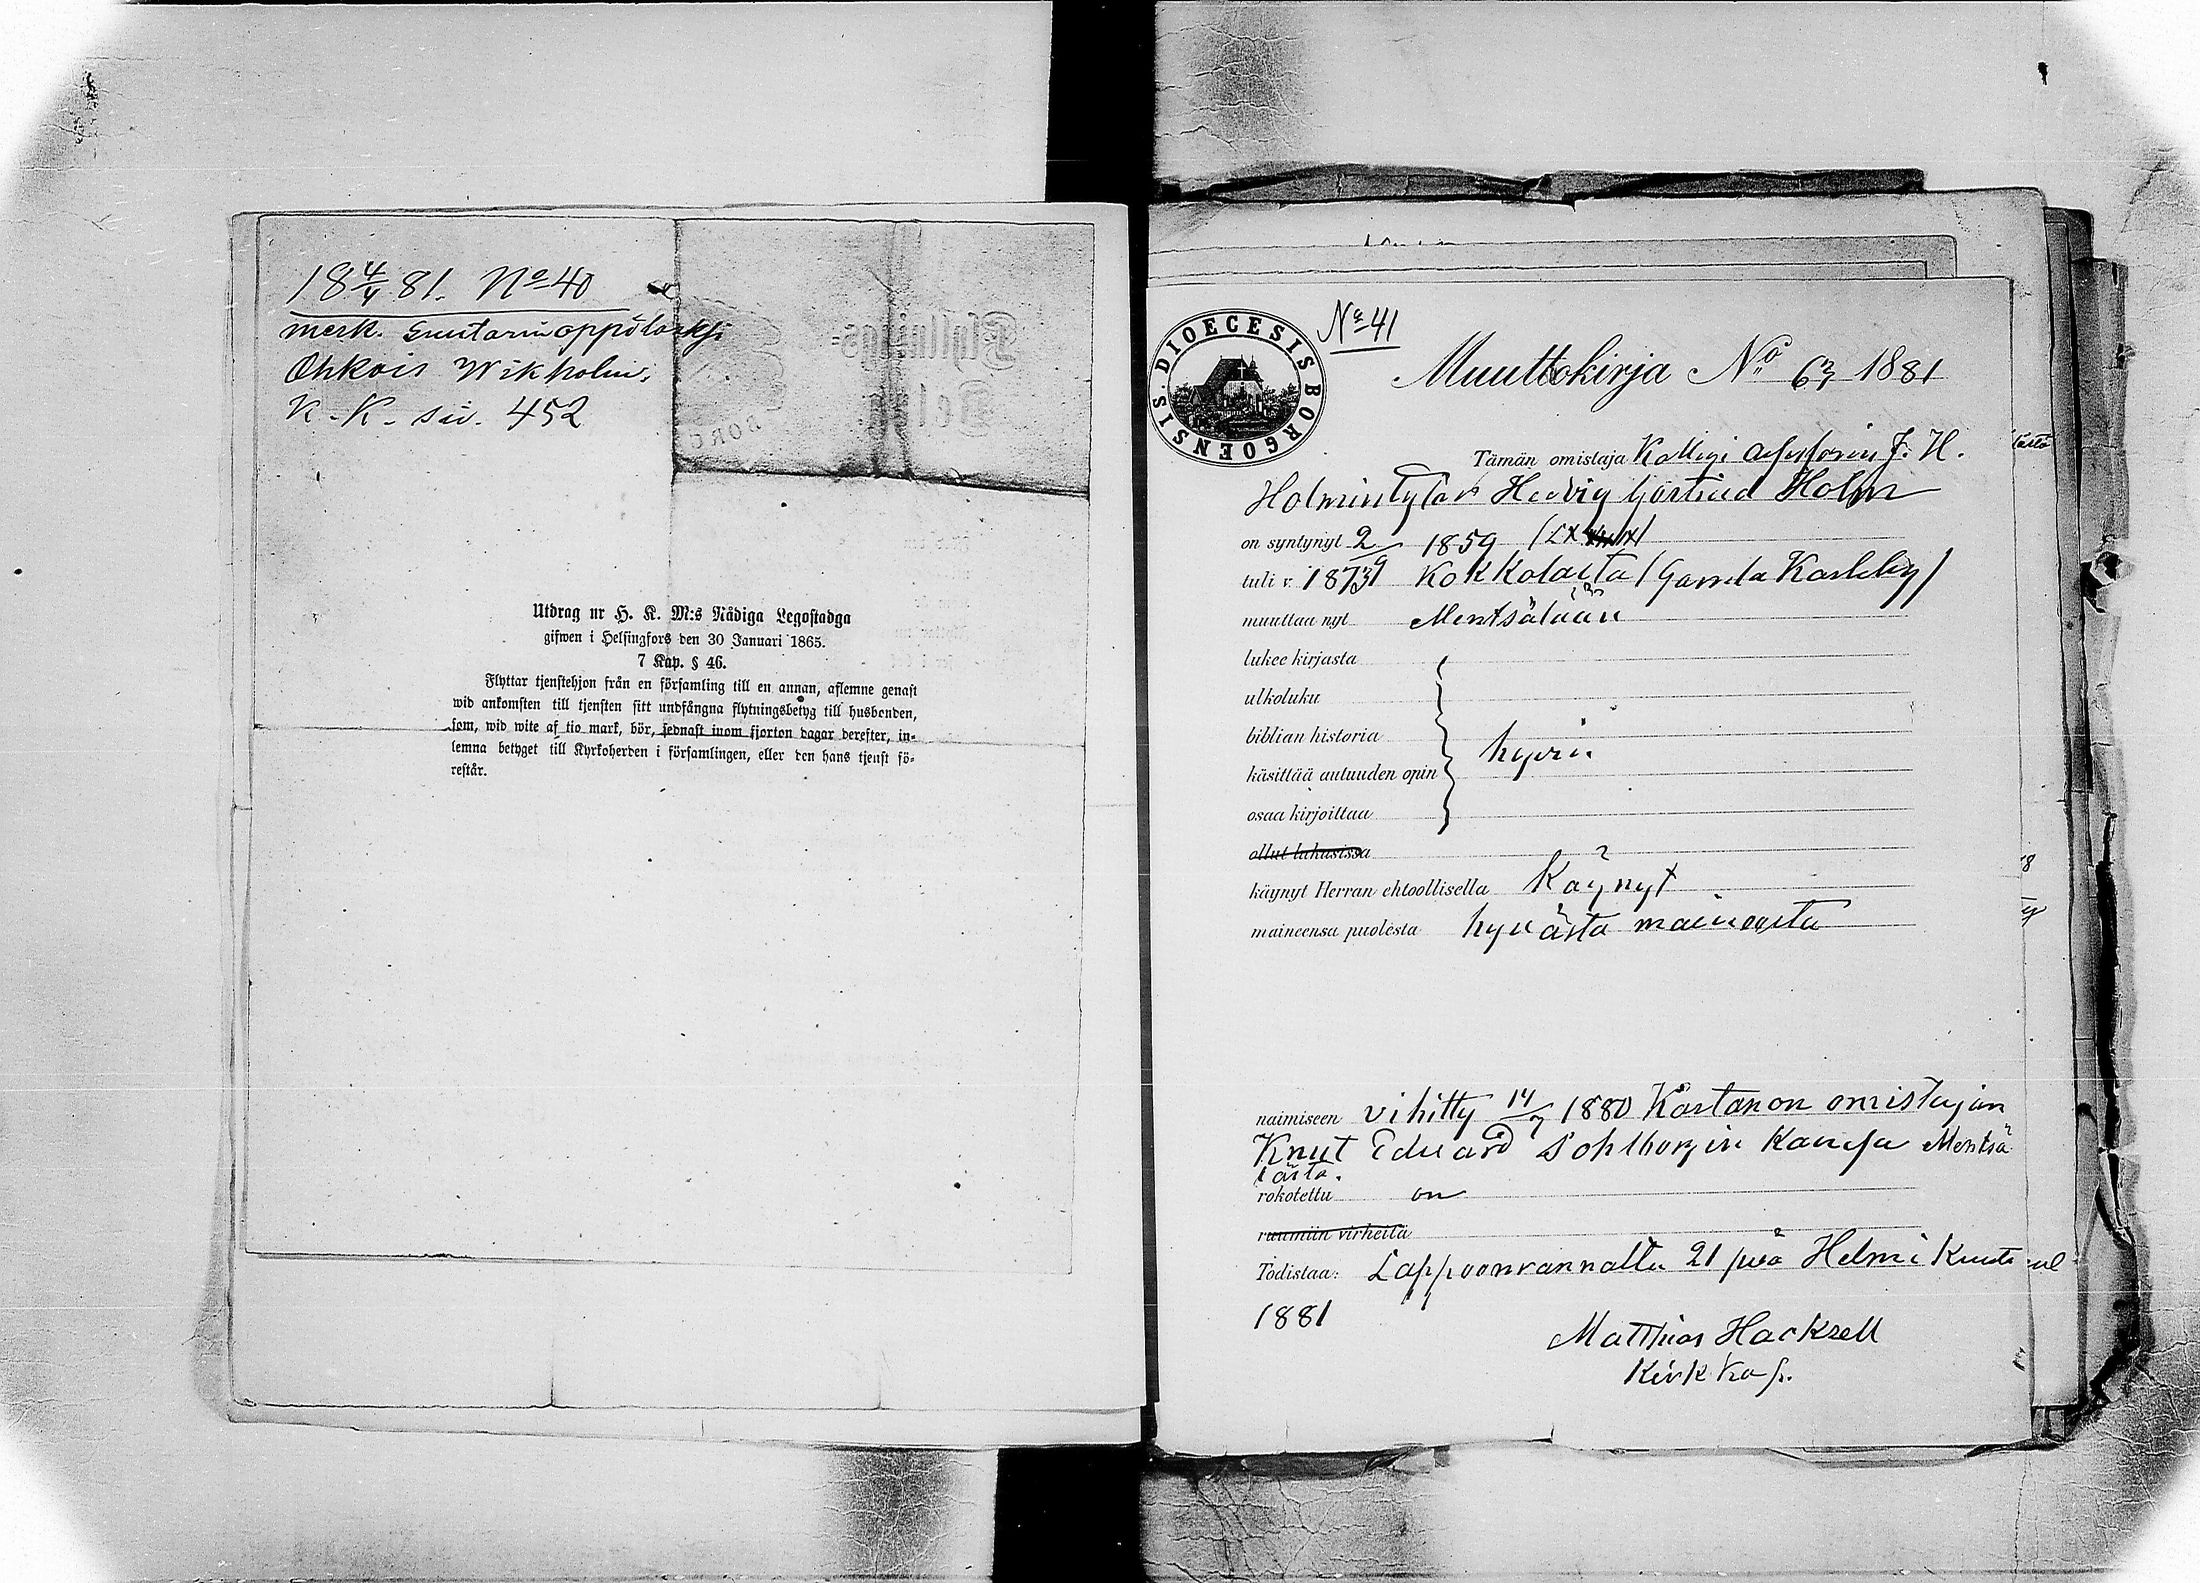 18 4/4 81. No 40
merk. Suutarinoppilaaksi
Ohkois Wikholm.
K. K. siv. 452
Utdrag ur H. K. M:s Nådiga Legostadga
gifwen i Helsingfors den 30 Januari 1865.
7 Kap. § 46.
Flyttar tjenstehjon från en församling till en annan, aflemne genast
wid ankomsten till tjensten sitt undfångna flytningsbetyg till husbonden,
som, wid wite af tio mark, bör, sednast inom fjorton dagar derefter, in-
lemna betyget till Kyrkoherden i församlingen, eller den hans tjenst fö-
restår.
DIOECESIS BORGOENSIS
No 41
Muuttokirja No 63 1881
Tämän omistaja Kollegi Assessorin J. H.
Holmin tytär Hedvig Gertrud Holm
on syntynyt 2/9 1859
tuli v. 1873 Kokkolasta (Gamla Karleby)
muuttaa nyt Mentsälään
lukee kirjasta
ulkoluku
biblian historia
käsittää autuuden opin hyvin
osaa kirjoittaa
ollut lukusissa
käynyt Herran ehtoollisella Käynyt
maineensa puolesta hyvästä maineesta
naimiseen vihitty 14/9 1880 Kartanon omistajan
Knut Eduard Sohlbergin kanssa Mentsä
lästä.
rokotettu on
ruumiin virheitä
Todistaa: Lappeenrannalta 21 pvä Helmikuuta
1881
Matthias Hackzell
Kirkkoh.